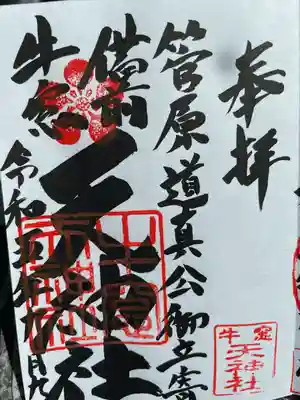 奉拝
菅原道真公御立寄
備前
牛窓
天神社
令和五年九月九
牛窓
天神社